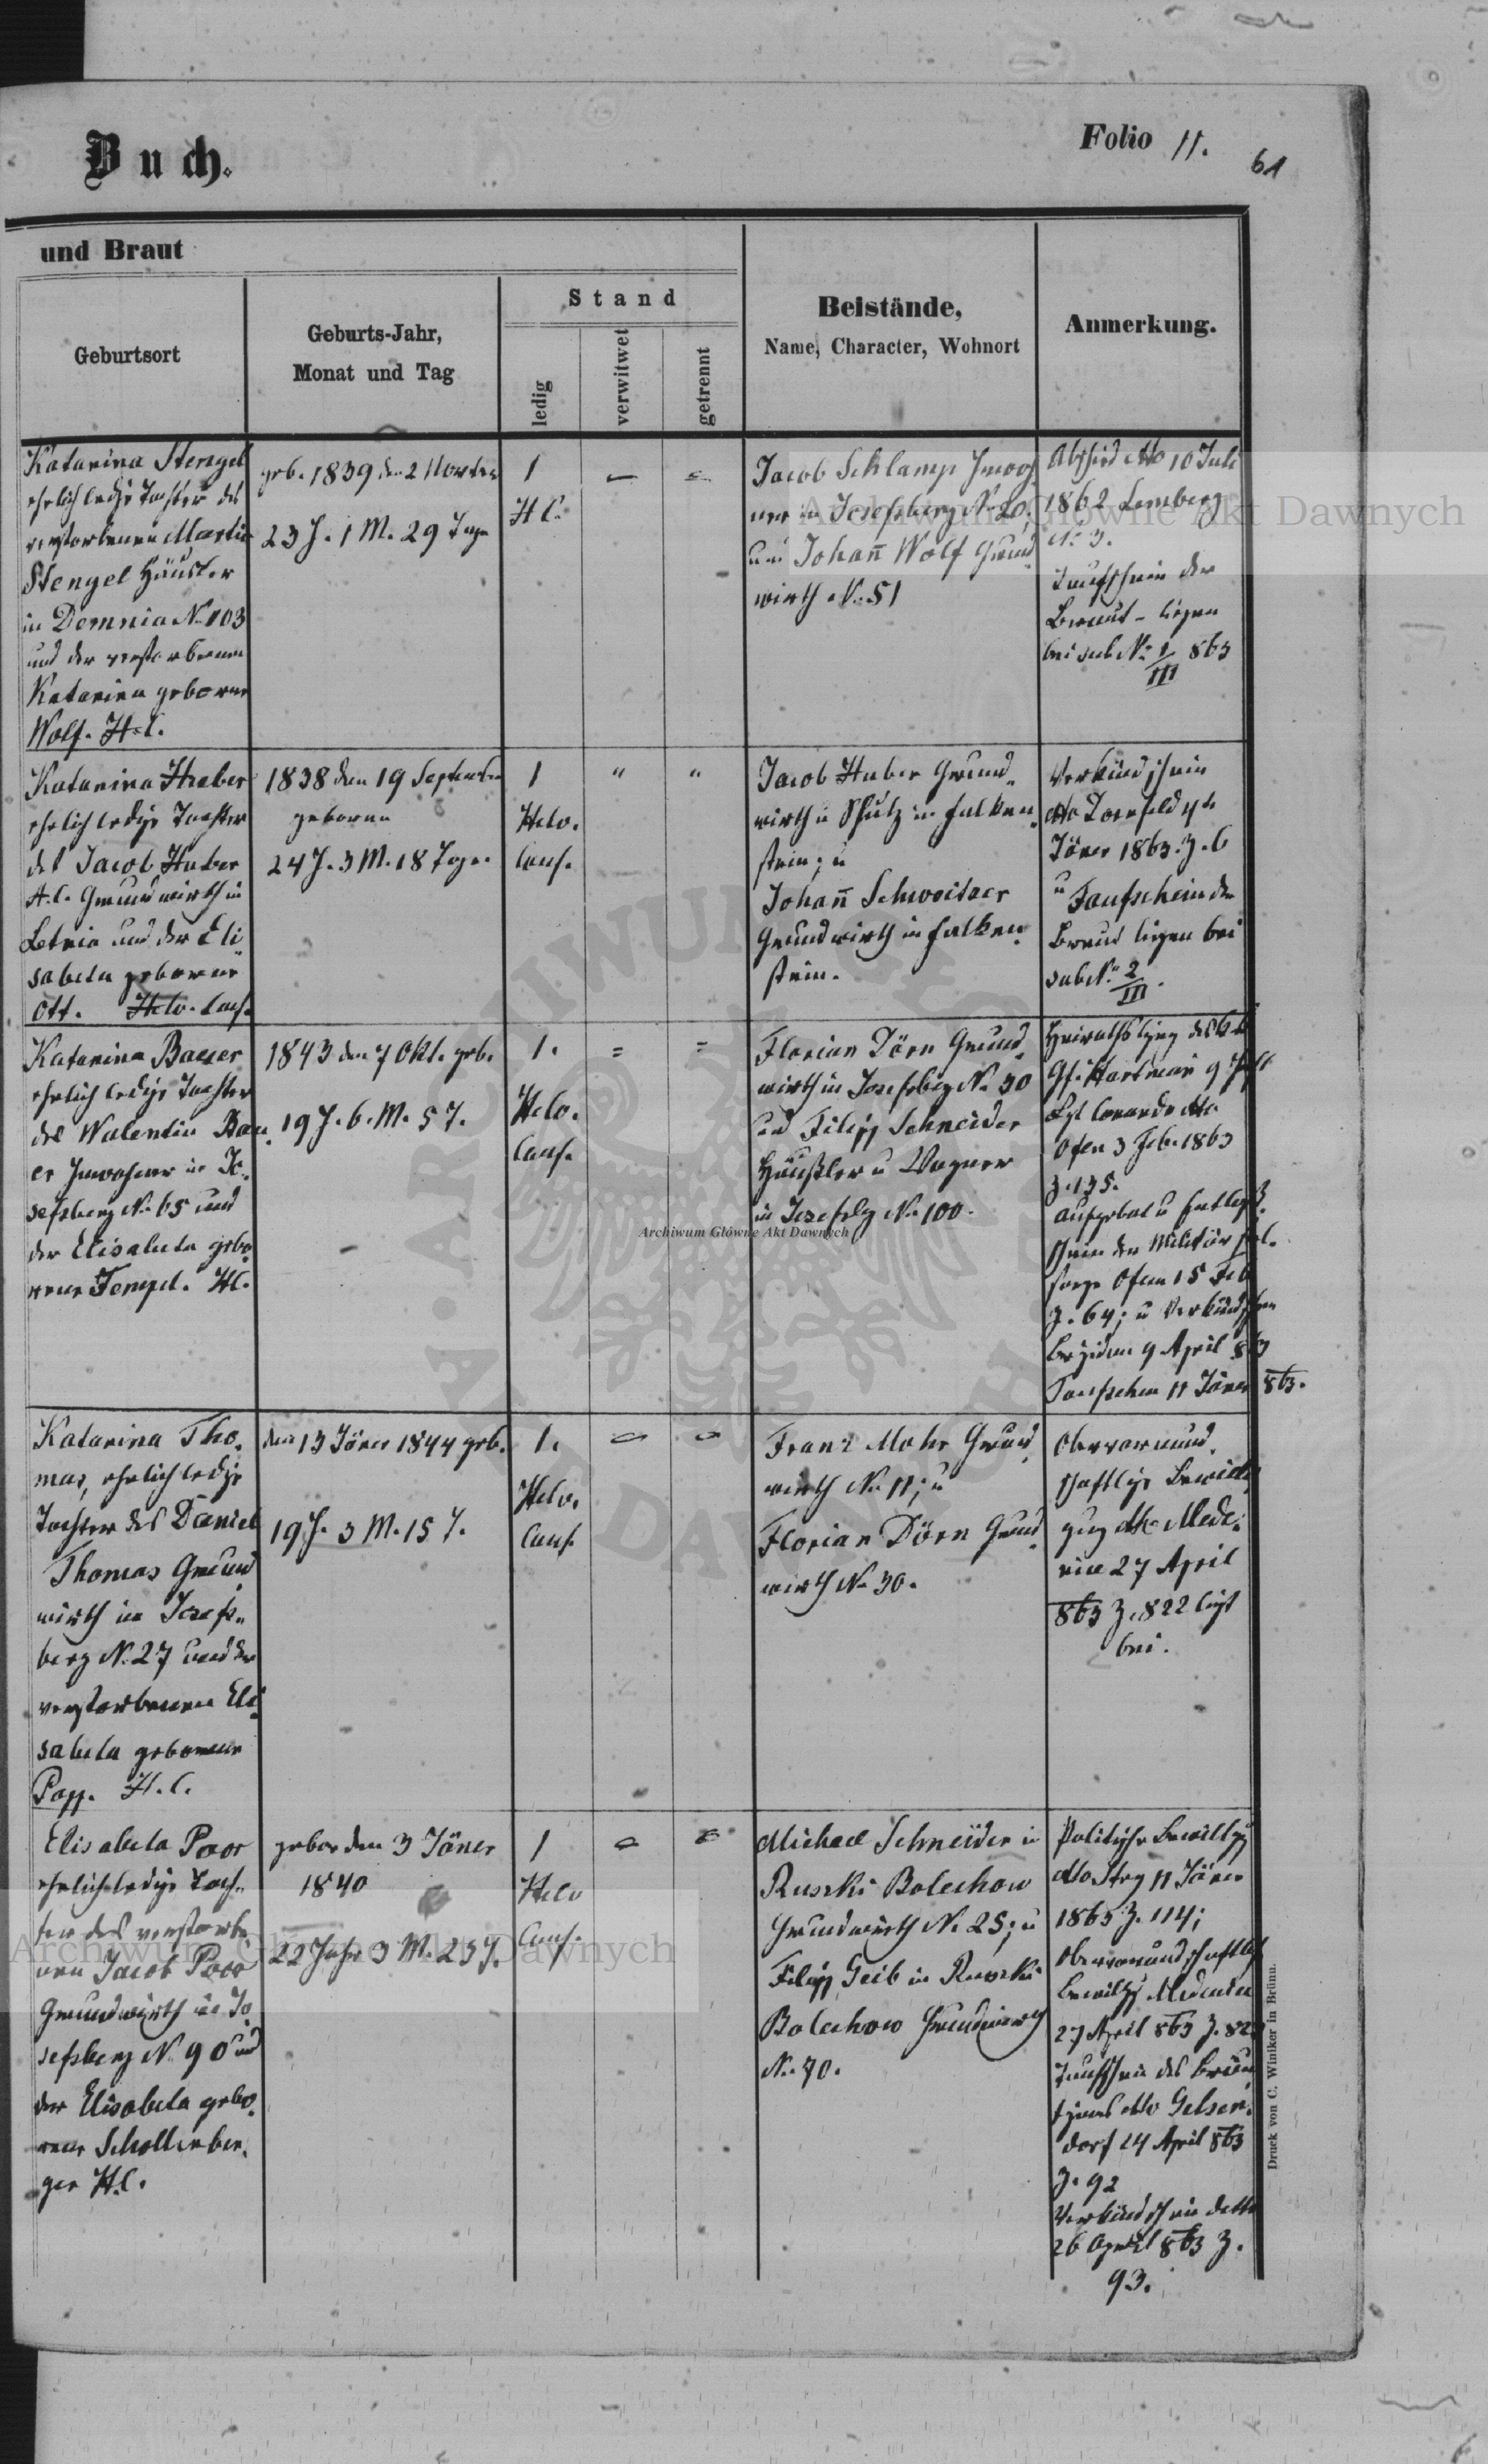 Buch.
Folio 11.
61
und Braut
Geburtsort
Geburts-Jahr,
Monat und Tag
Stand
ledig
verwitwet
getrennt
Beistände,
Name, Character, Wohnort
Anmerkung.
Katarina Stengel
ehelich ledige Tochter des
verstorbenen Martin
Stengel Häusler
in Demnia No 103
und der verstorbenen
Katarina geborne
Wolf. H.C.
geb. 1839 den 2 November
23 J. 1 M. 29 Tage
1
H C.
Jacob Schlamp Inwoh
ner in Josefsberg No 20,
und Johann̄ Wolf Grund
wirth No 51
Abschied dto 10 Juli
1862 Lemberg
No 3.
Taufschein der
Braut - liegen
bei sub No 1/III 863
Katarina Huber
ehelich ledige Tochter
des Jacob Huber
H.C. Grundwirth in
Letnia und der Eli
sabeta geborne
Ott. Helv. Conf.
1838 den 19 September
geboren
24 J. 3 M. 18 Tage.
1
Helv.
Conf.
" "
Jacob Huber Grund„
wirth u Schulz in Falken„
stein; u
Johann̄ Schweitzer
Grundwirth in Falken„
stein.
Verkündschein
dto Dornfeld 4t
Jäner 1863. Z. 6
u Taufschein der
Braut liegen bei
sub No 2/III.
Katarina Bauer
ehelich ledige Tochter
des Walentin Bau„
er Inwohner in Jo„
sefsberg No 65 und
der Elisabeta gebo
rene Tempel. HC.
1843 den 7 Okt. geb.
19 J. 6. M. 5 T.
1.
Helv.
Conf.
= =
Florian Dörn Grund„
wirth in Josefsbg No 30
und Filipp Schneider
Häußler u Wagner
in Josefsbg No 100.
Gf. Hartman 9
Ofen 3 Feb. 1863
Z. 135.
Aufgebot u
schein der Militär
sorge Ofen 15 Feb
Z. 64; u
9 April 863
Taufschein 11 Jäner 863.
Katarina Tho„
mas, ehelich ledige
Tochter des Daniel
Thomas Grund
wirth in Josefs„
berg No 27 und der
verstorbenen Eli
sabeta geborene
Popp. H. C.
den 13 Jäner 1844 geb.
19 J. 3 M. 15 T.
1.
Helv.
Conf.
Franz Mohr Grund„
wirth No 11; u
Florian Dörn Grund„
wirth No 30.
Obervormund„
schaftliche Bewilli
gung dto Mede„
nice 27 April
863 Z. 822 liegt
bei.
Elisabeta Poor
ehelich ledige Toch„
ter des verstorbe„
nen Jacob Poor
Grundwirth in Jo„
sefsberg No 90 und
der Elisabeta gebo„
rene Schollenber„
ger H.C.
gebor den 3 Jäner
1840
22 Jahr 3 M. 23 T.
1
Helv
Conf.
Michael Schneider in
Ruszki Bolechow
Grundwirth No 25; u
Filipp Geib in Ruszki
Bolechow Grundwirth
No 70.
Politische Bewillgg
dto Stry 11 Jäner
1863 Z. 114;
Obervormundschaftl
Bewillgg Medenice
27 April 863 Z. 823
Taufschein des Bräu
tigams dto Gelsen„
dorf 24 April 863
Z. 92
Verkündschein detto
26 April 863 Z.
93.
Druck von C. Winiker in Brünn.
Archiwum Główne Akt Dawnych
Archiwum Główne Akt Dawnych
Archiwum Główne Akt Dawnych